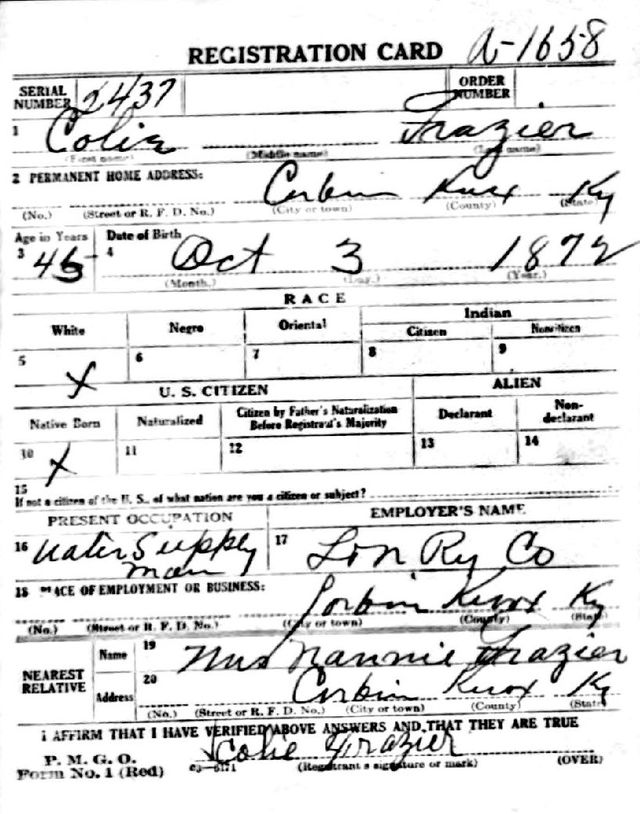 REGISTRATION CARD A-1658
SERIAL NUMBER 2437 ORDER NUMBER
1 Colie Frazier
(First name) (Middle name) (Last name)
2 PERMANENT HOME ADDRESS: Corbin Knox Ky
(No.) (Street or R. F. D. No.) (City or town) (County) (State)
Age in Years Date of Birth
3 45 4 Oct 3 1872
(Month.) (Day.) (Year.)
RACE
White Negro Oriental Indian
Citizen Noncitizen
5 X 6 7 8 9
U. S. CITIZEN ALIEN
Native Born Naturalized Citizen by Father's Naturalization Before Registrant's Majority Declarant Non-declarant
10 X 11 12 13 14
15
If not a citizen of the U. S., of what nation are you a citizen or subject?
PRESENT OCCUPATION EMPLOYER'S NAME
16 Water Supply man 17 L & N Ry Co
18 PLACE OF EMPLOYMENT OR BUSINESS: Corbin Knox Ky
(No.) (Street or R. F. D. No.) (City or town) (County) (State)
NEAREST RELATIVE Name 19 Mrs Nannie Frazier
Address 20 Corbin Knox Ky
(No.) (Street or R. F. D. No.) (City or town) (County) (State)
I AFFIRM THAT I HAVE VERIFIED ABOVE ANSWERS AND THAT THEY ARE TRUE
P. M. G. O.
Form No. 1 (Red) 03—6171 Colie Frazier
(Registrant's signature or mark) (OVER)